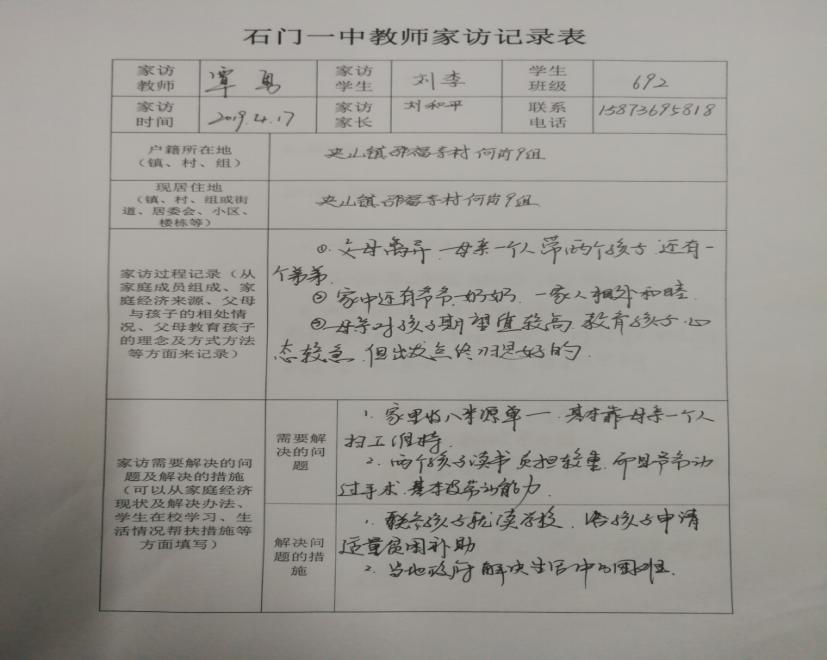 石门一中教师家访记录表
家访教师 覃勇 家访学生 刘李 学生班级 692
家访时间 2019.4.17 家访家长 刘和平 联系电话 15873695818
户籍所在地
(镇、村、组)
夹山镇 福寺村何岗9组
现居住地
(镇、村、组或街
道、居委会、小区、
楼栋等)
夹山镇 福寺村何岗9组
家访过程记录(从
家庭成员组成、家
庭经济来源、父母
与孩子的相处情
况、父母教育孩子
的理念及方式方法
等方面来记录)
①. 父母离异,母亲一个人带两个孩子,还有一
个弟弟.
② 家中还有爷爷.奶奶.一家人相处和睦.
③母亲对孩子期望值较高,教育孩子心
态较急,但出发点终归是好的.
家访需要解决的问
题及解决的措施
(可以从家庭经济
现状及解决办法、
学生在校学习、生
活情况帮扶措施等
方面填写)
需要解
决的问
题
1. 家里收入来源单一.基本靠母亲一个人
打工维持.
2. 两个孩子读书负担较重,而且爷爷动
过手术.基本没劳动能力.
解决问
题的措
施
1. 联系孩子就读学校,给孩子申请
适量贫困补助
2. 当地政府解决生活中的困难.